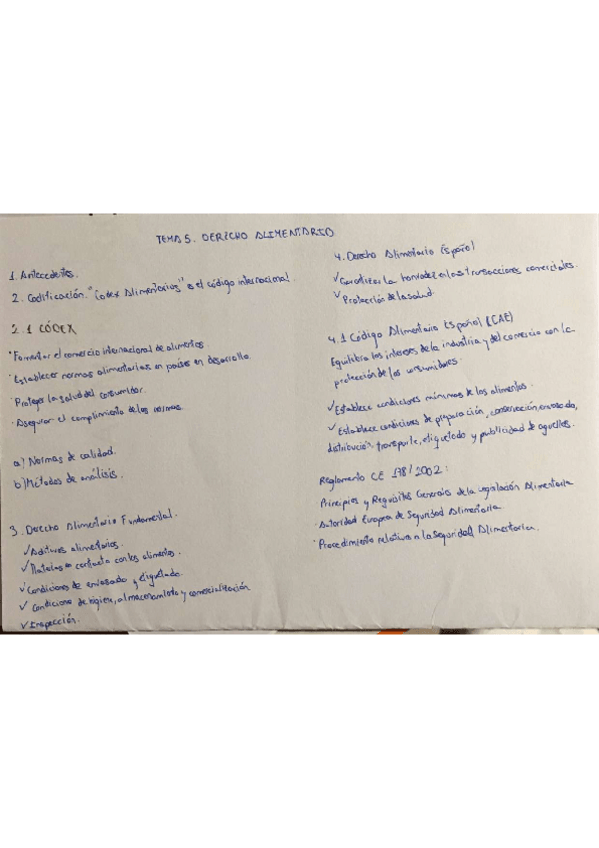 TEMA 5. DERECHO ALIMENTARIO
1. Antecedentes.
2. Codificación. "Codex Alimentarius" es el código internacional.
2.1 CÓDEX
·Fomentar el comercio internacional de alimentos.
·Establecer normas alimentarias en países en desarrollo.
·Proteger la salud del consumidor.
·Asegurar el cumplimiento de las normas.
a) Normas de calidad.
b) Métodos de análisis.
3. Derecho Alimentario Fundamental.
✓Aditivos alimentarios.
✓Materias en contacto con los alimentos.
✓Condiciones de envasado y etiquetado.
✓Condiciones de higiene, almacenamiento y comercialización
✓Inspección.
4. Derecho Alimentario Español
✓Garantizar la honradez en las transacciones comerciales.
✓Protección de la salud.
4.1 Código Alimentario Español (CAE)
Equilibra los intereses de la industria y del comercio con la
protección de los consumidores.
✓Establece condiciones mínimas de los alimentos.
✓Establece condiciones de preparación, conservación, envasado,
distribución, transporte, etiquetado y publicidad de aquellos.
Reglamento CE 178/2002:
Principios y Requisitos Generales de la Legislación Alimentaria
·Autoridad Europea de Seguridad Alimentaria
·Procedimiento relativo a la Seguridad Alimentaria.